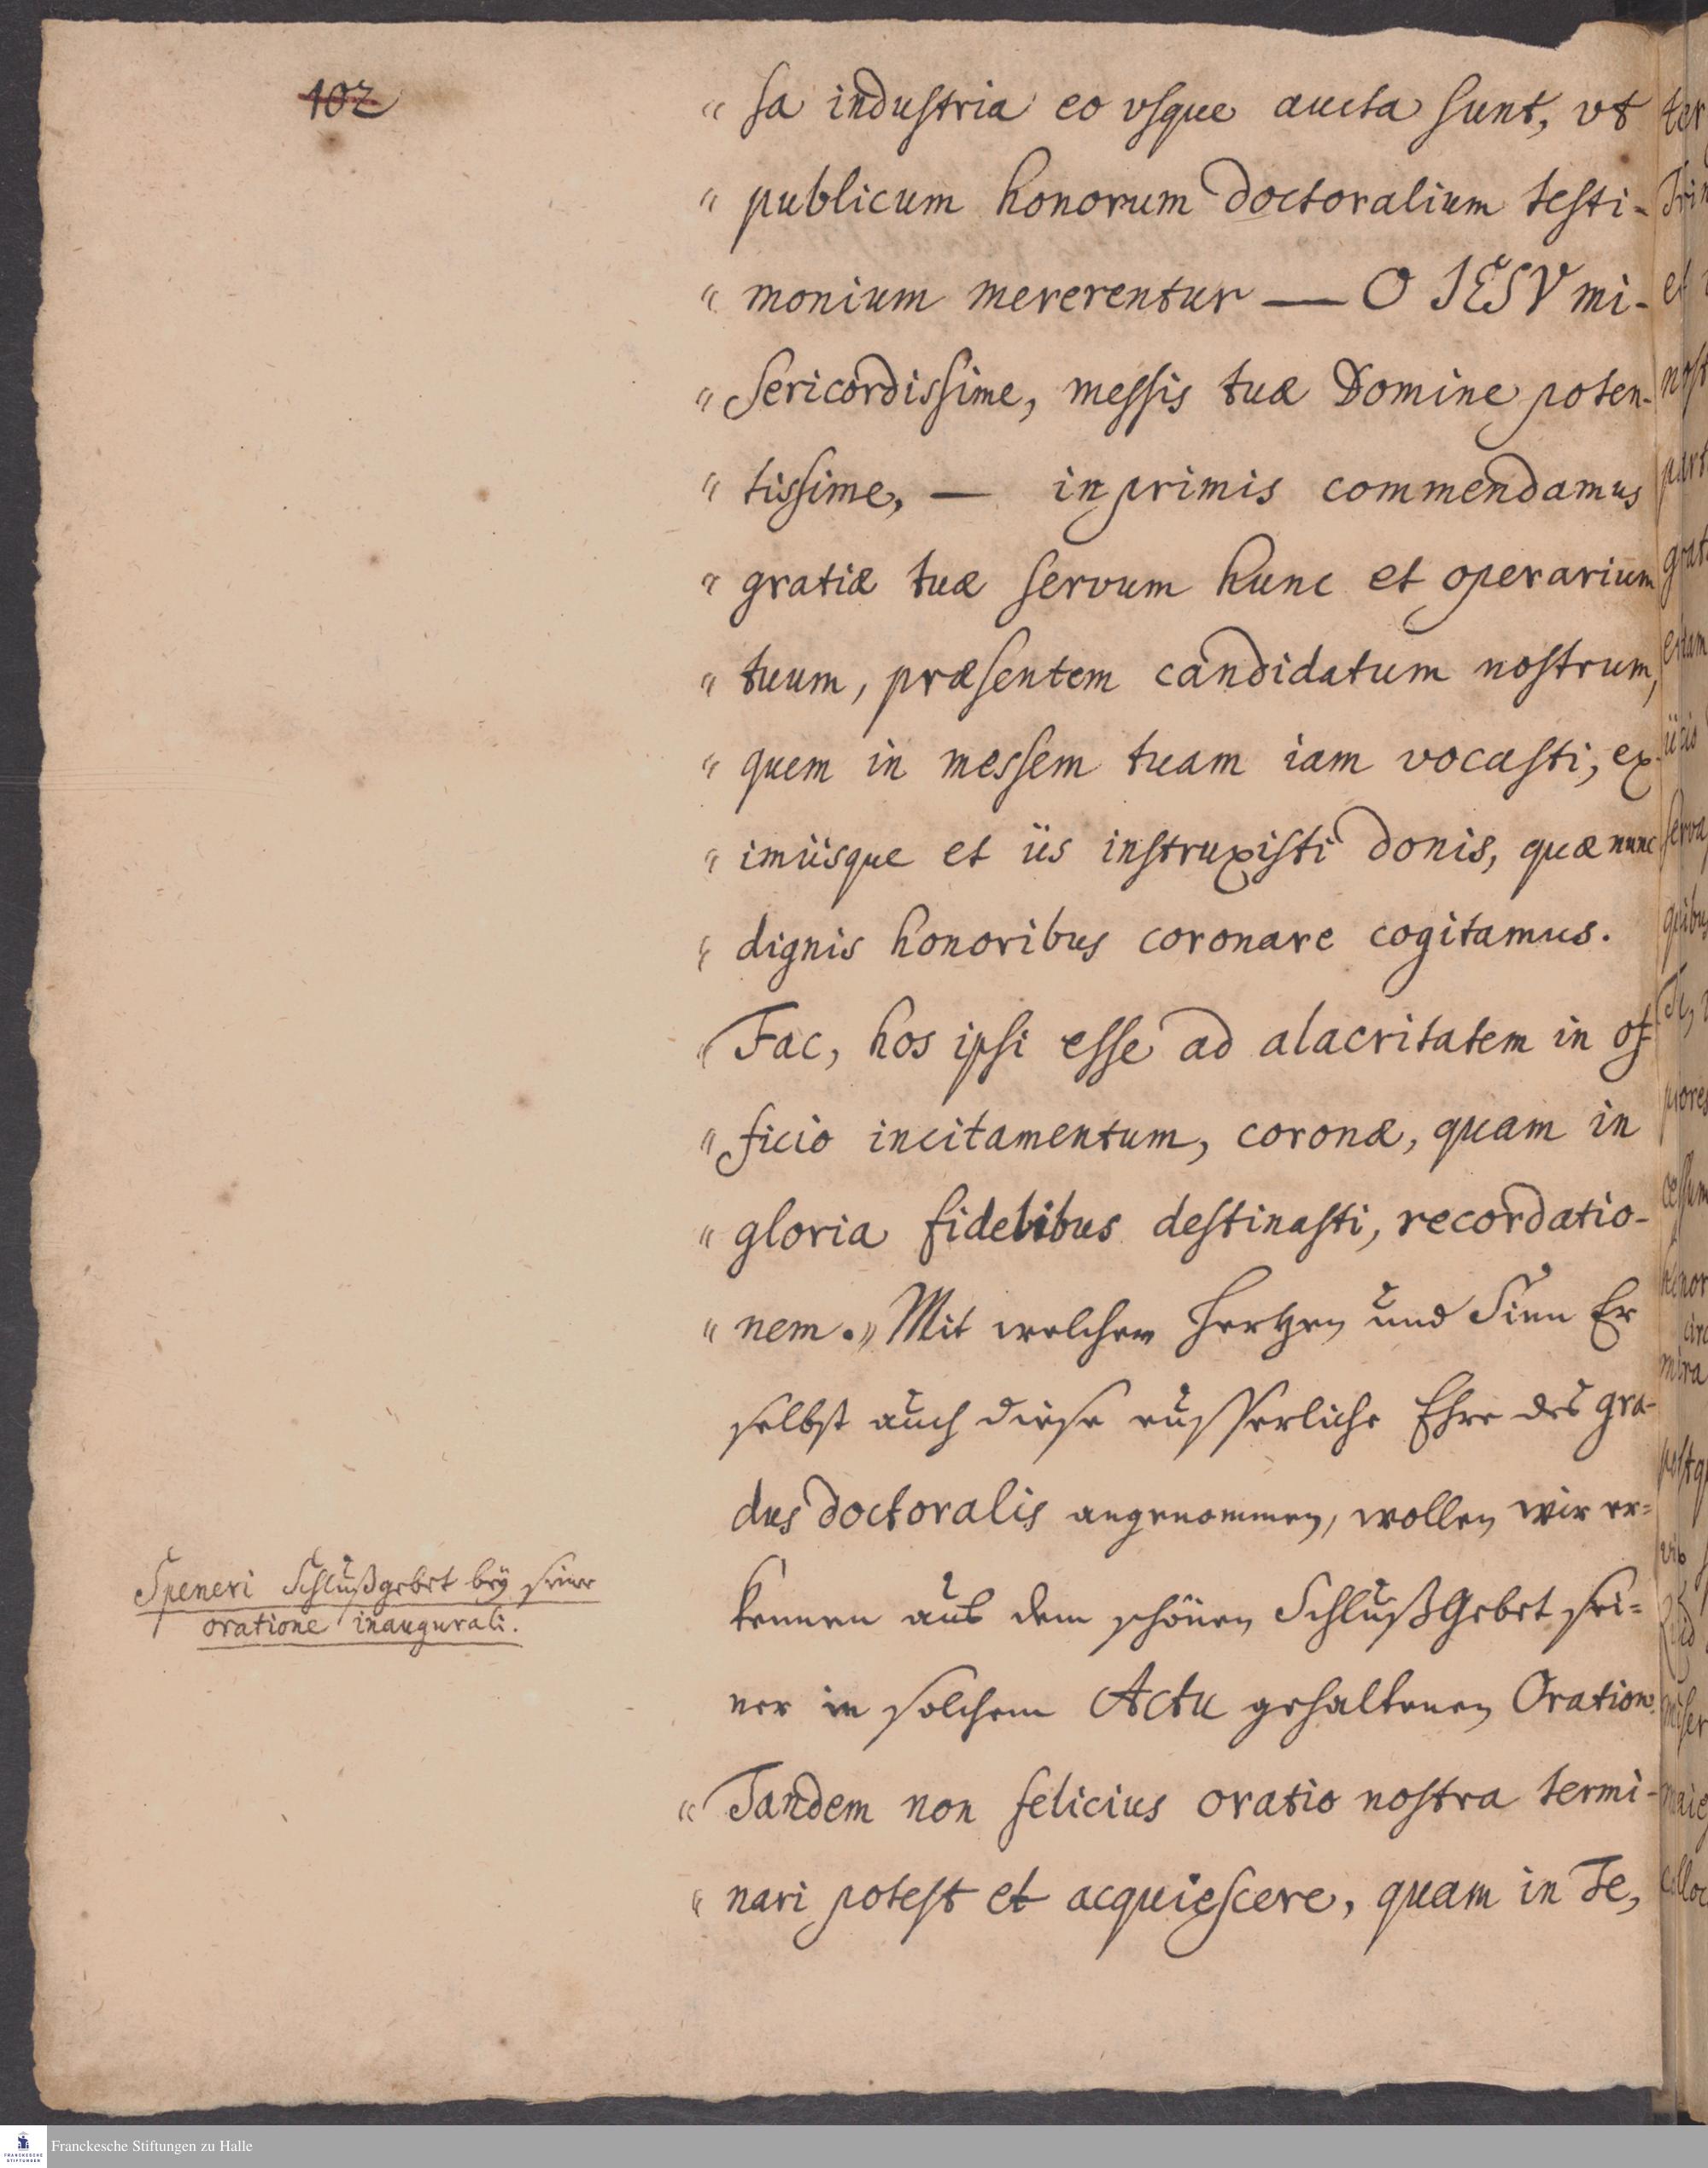 102
„ sa industria eo vsque aucta sunt, vt
„ publicum honorum doctoralium testi-
„ monium mererentur — O JESV mi-
„ sericordissime, messis tuæ Domine poten-
„ tissime, — inprimis commendamus
„ gratiæ tuæ servum hunc et operarium
„ tuum, præsentem candidatum nostrum,
„ quem in messem tuam iam vocasti, ex-
„ imiisque et iis instruxisti donis, quæ nunc
„ dignis honoribus coronare cogitamus.
„ Fac, hos ipsi esse ad alacritatem in of-
„ ficio incitamentum, coronæ, quam in
„ gloria fidelibus destinasti, recordatio-
„ nem.„ Mit welchem Hertzen und Sinn Er
selbst auch diese eusserliche Ehre des gra-
dus doctoralis angenommen, wollen wir er-
kennen aus dem schönen SchlußGebet sei-
ner in solchem Actu gehaltenen Oration.
„ Tandem non felicius oratio nostra termi-
„ nari potest et acquiescere, quam in Te,
Speneri Schlußgebet bey seiner
oratione inaugurali.
Franckesche Stiftungen zu Halle